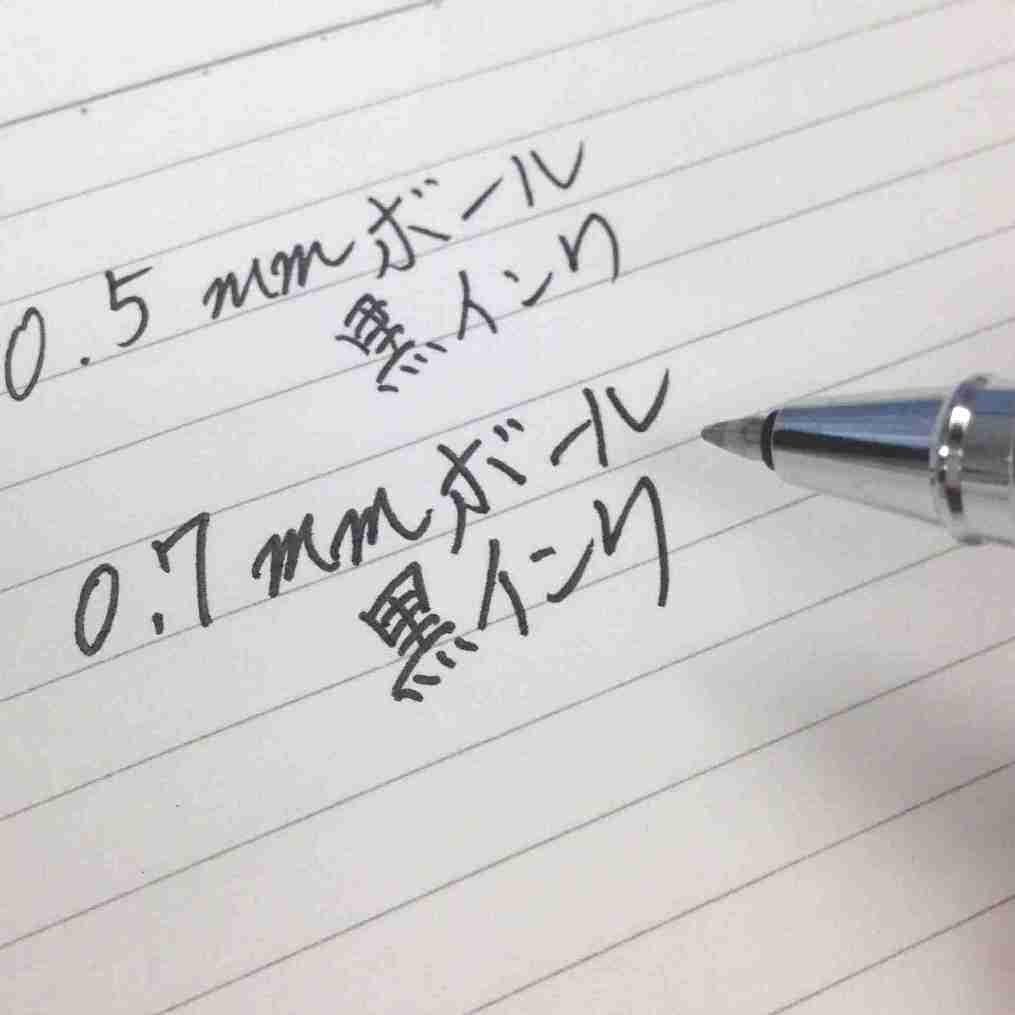 0.5mmボール
黒インク
0.7mmボール
黒インク